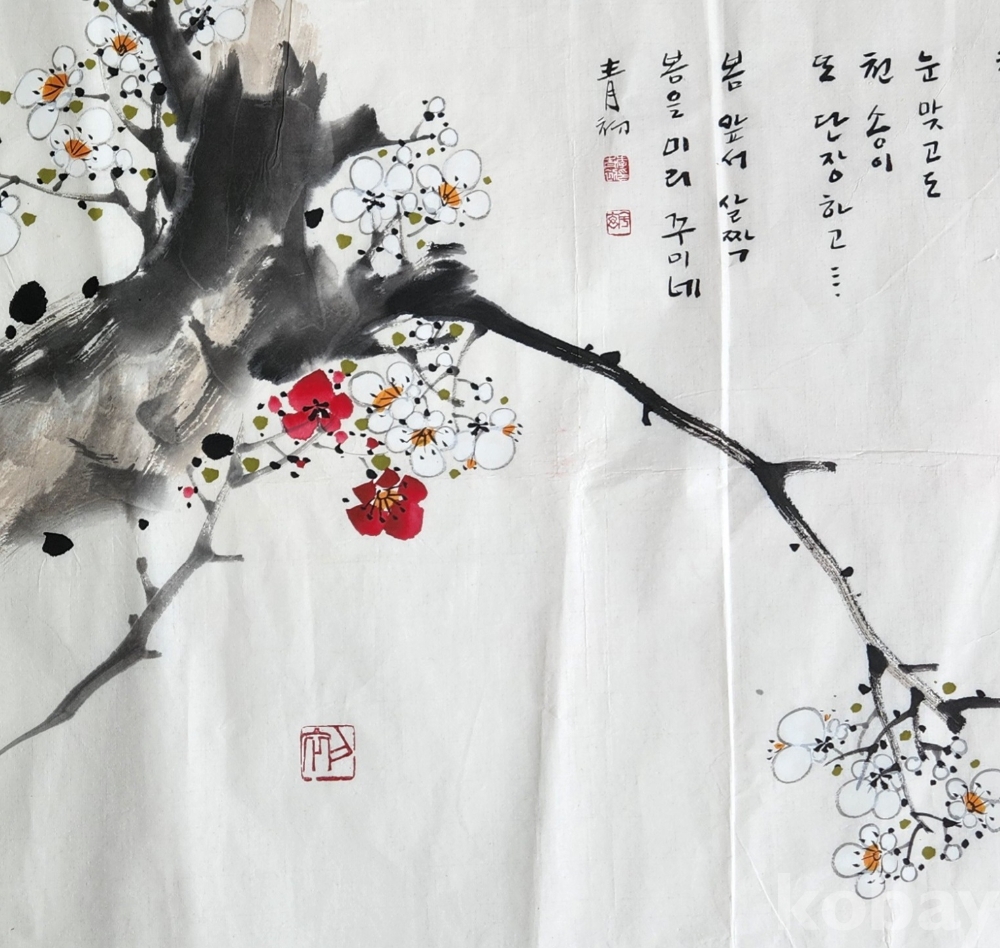 눈 맞고도
천 송이
또 단장하고…
봄 앞서 살짝
봄을 미리 꾸미네
kobay